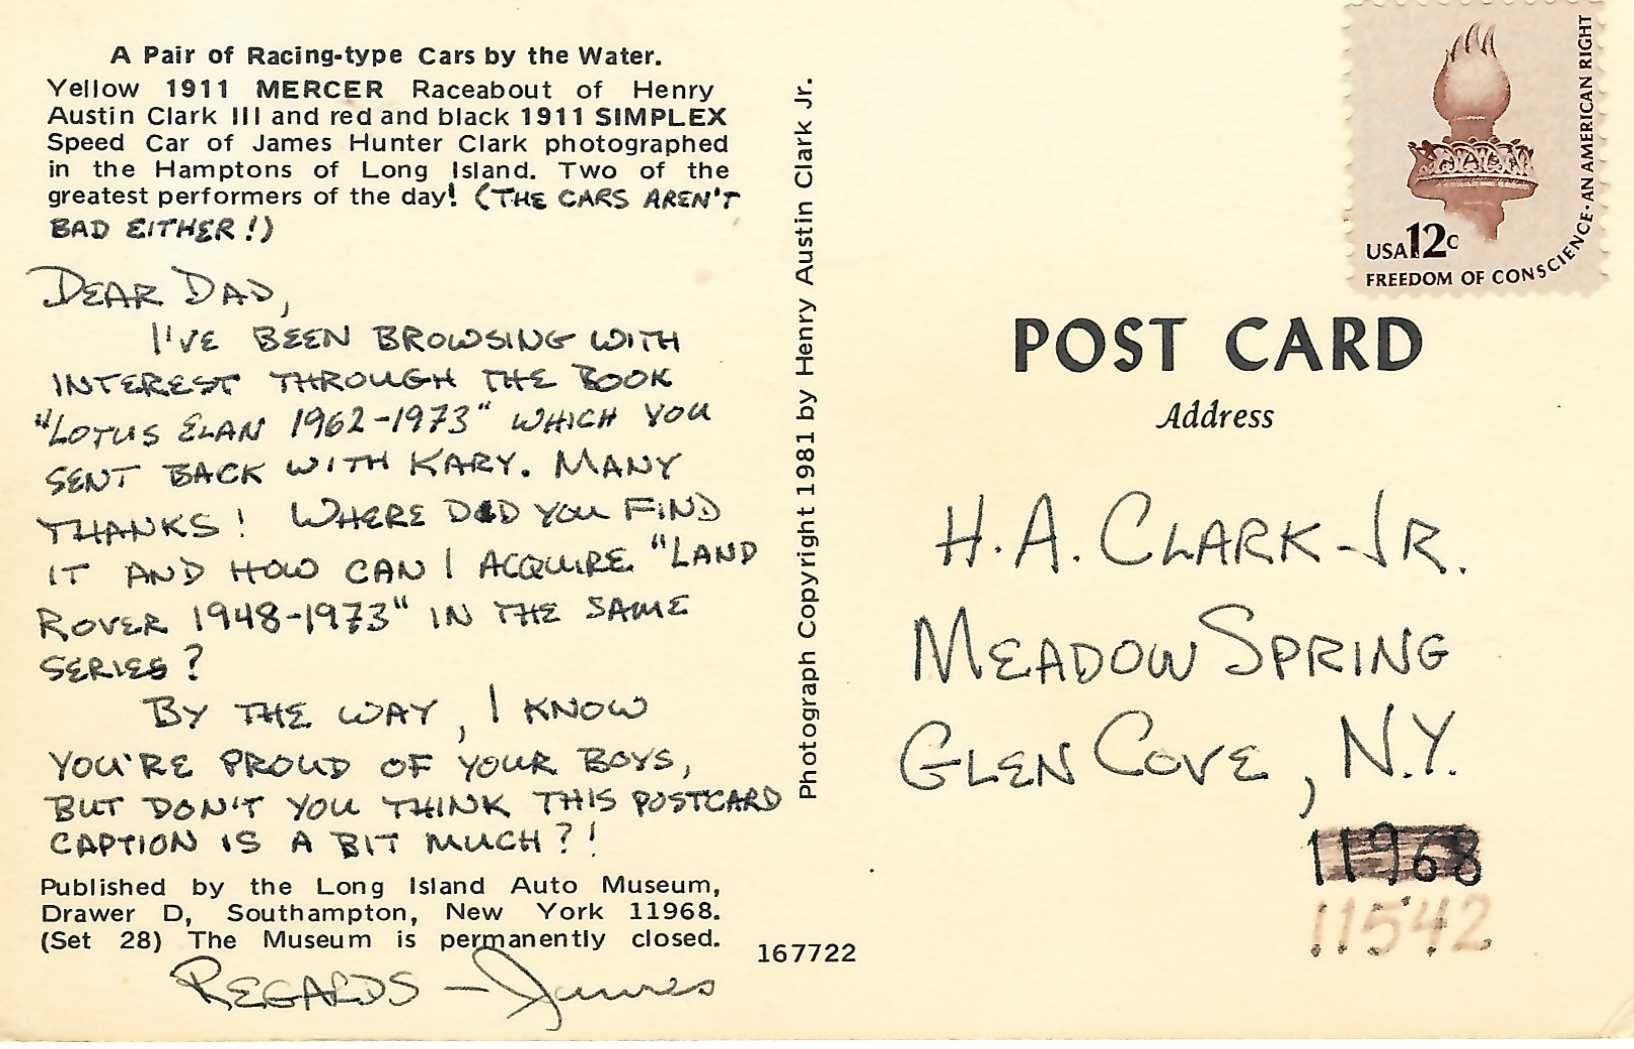 A Pair of Racing-type Cars by the Water.
Yellow 1911 MERCER Raceabout of Henry
Austin Clark III and red and black 1911 SIMPLEX
Speed Car of James Hunter Clark photographed
in the Hamptons of Long Island. Two of the
greatest performers of the day! (THE CARS AREN'T
BAD EITHER!)
DEAR DAD,
I'VE BEEN BROWSING WITH
INTEREST THROUGH THE BOOK
"LOTUS ELAN 1962-1973" WHICH YOU
SENT BACK WITH KARY. MANY
THANKS! WHERE DID YOU FIND
IT AND HOW CAN I ACQUIRE "LAND
ROVER 1948-1973" IN THE SAME
SERIES?
BY THE WAY, I KNOW
YOU'RE PROUD OF YOUR BOYS,
BUT DON'T YOU THINK THIS POSTCARD
CAPTION IS A BIT MUCH?!
Published by the Long Island Auto Museum,
Drawer D, Southampton, New York 11968.
(Set 28) The Museum is permanently closed.
REGARDS - James
167722
Photograph Copyright 1981 by Henry Austin Clark Jr.
USA 12c
FREEDOM OF CONSCIENCE · AN AMERICAN RIGHT
POST CARD
Address
H. A. CLARK-JR.
MEADOW SPRING
GLEN COVE, N.Y.
11968
11542